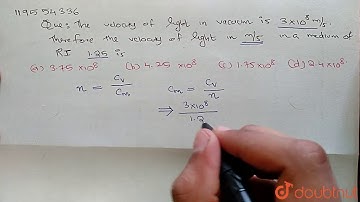 119554336
Que: The velocity of light in vacuum is 3×10⁸ m/s.
Therefore the velocity of light in m/s in a medium of
RI 1.25 is
(a) 3.75 ×10⁸ (b) 4.25 ×10⁸ (c) 1.75×10⁸ (d) 2.4×10⁸.
n = Cv/Cm Cm = Cv/n
⇒ 3×10⁸/1.2
doubtnut